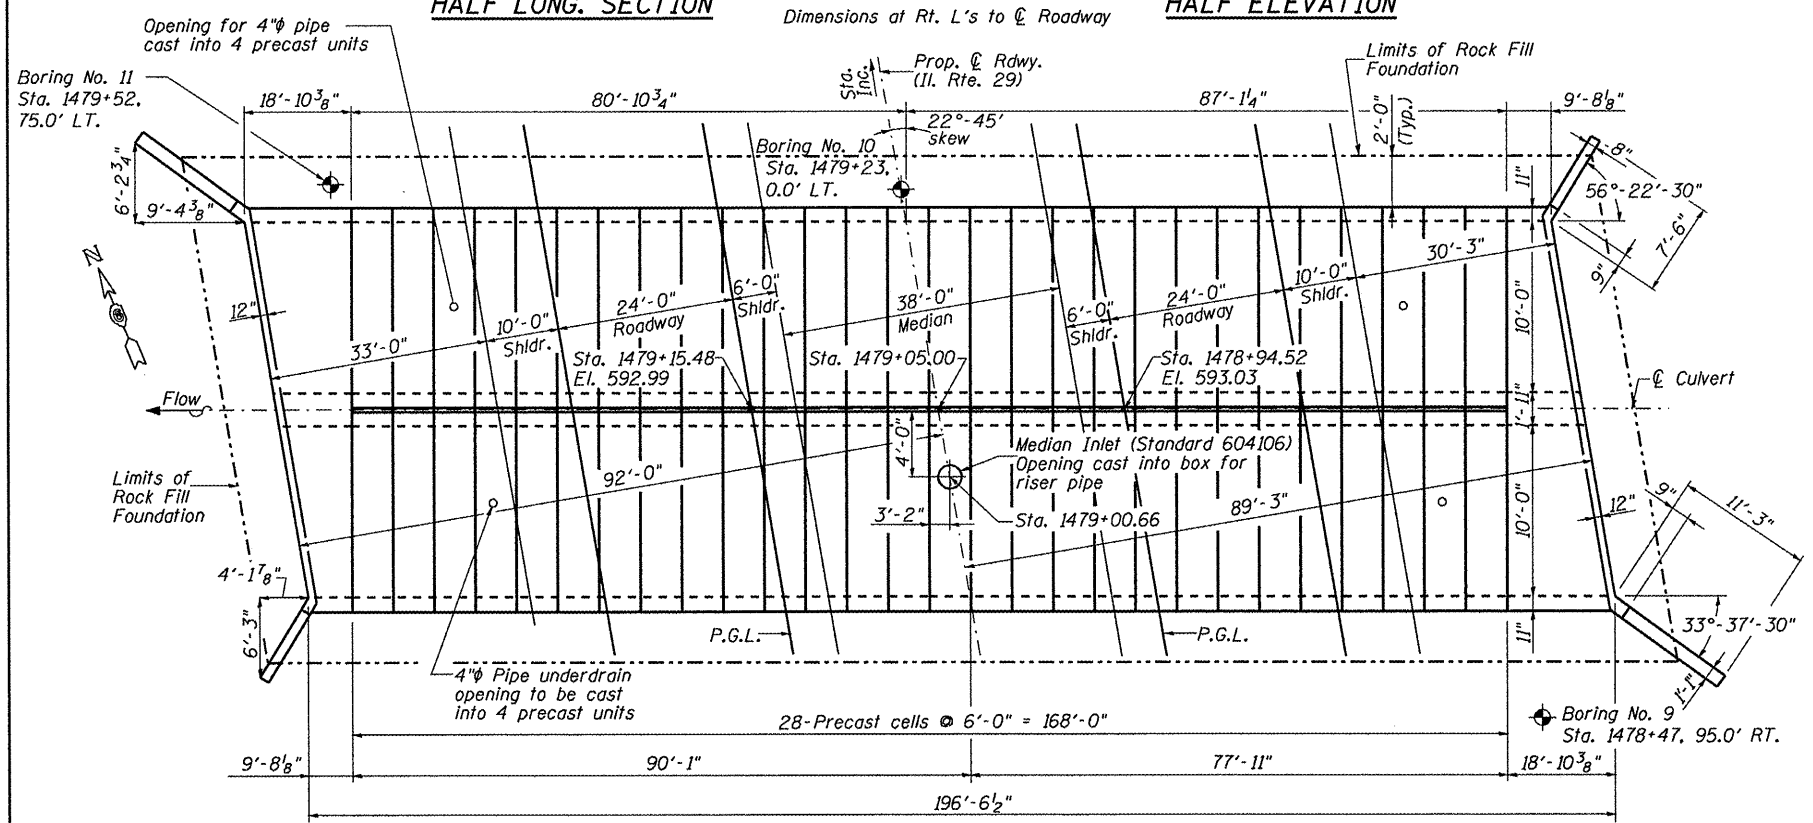 HALF LONG. SECTION
Dimensions at Rt. L's to ℄ Roadway
HALF ELEVATION
Opening for 4"φ pipe
cast into 4 precast units
Boring No. 11
Sta. 1479+52,
75.0' LT.
Sta.
Inc.
Prop. ℄ Rdwy.
(Il. Rte. 29)
Limits of Rock Fill
Foundation
18'-10 3/8"
80'-10 3/4"
87'-1 1/4"
9'-8 1/8"
2'-0"
(Typ.)
22°-45'
skew
Boring No. 10
Sta. 1479+23,
0.0' LT.
6'-2 3/4"
9'-4 3/8"
11"
-8"
56°-22'-30"
7'-6"
9"
N
12"
33'-0"
10'-0"
Shldr.
24'-0"
Roadway
6'-0"
Shldr.
38'-0"
Median
6'-0"
Shldr.
24'-0"
Roadway
10'-0"
Shldr.
30'-3"
10'-0"
Sta. 1479+15.48
El. 592.99
Sta. 1479+05.00
Sta. 1478+94.52
El. 593.03
Flow
℄ Culvert
1'-11"
4'-0"
Median Inlet (Standard 604106)
Opening cast into box for
riser pipe
92'-0"
89'-3"
Limits of
Rock Fill
Foundation
3'-2"
Sta. 1479+00.66
10'-0"
12"
9"
11'-3"
4'-1 7/8"
6'-3"
P.G.L.
P.G.L.
11"
33°-37'-30"
1'-1"
4"φ Pipe underdrain
opening to be cast
into 4 precast units
28-Precast cells @ 6'-0" = 168'-0"
Boring No. 9
Sta. 1478+47, 95.0' RT.
9'-8 1/8"
90'-1"
77'-11"
18'-10 3/8"
196'-6 1/2"